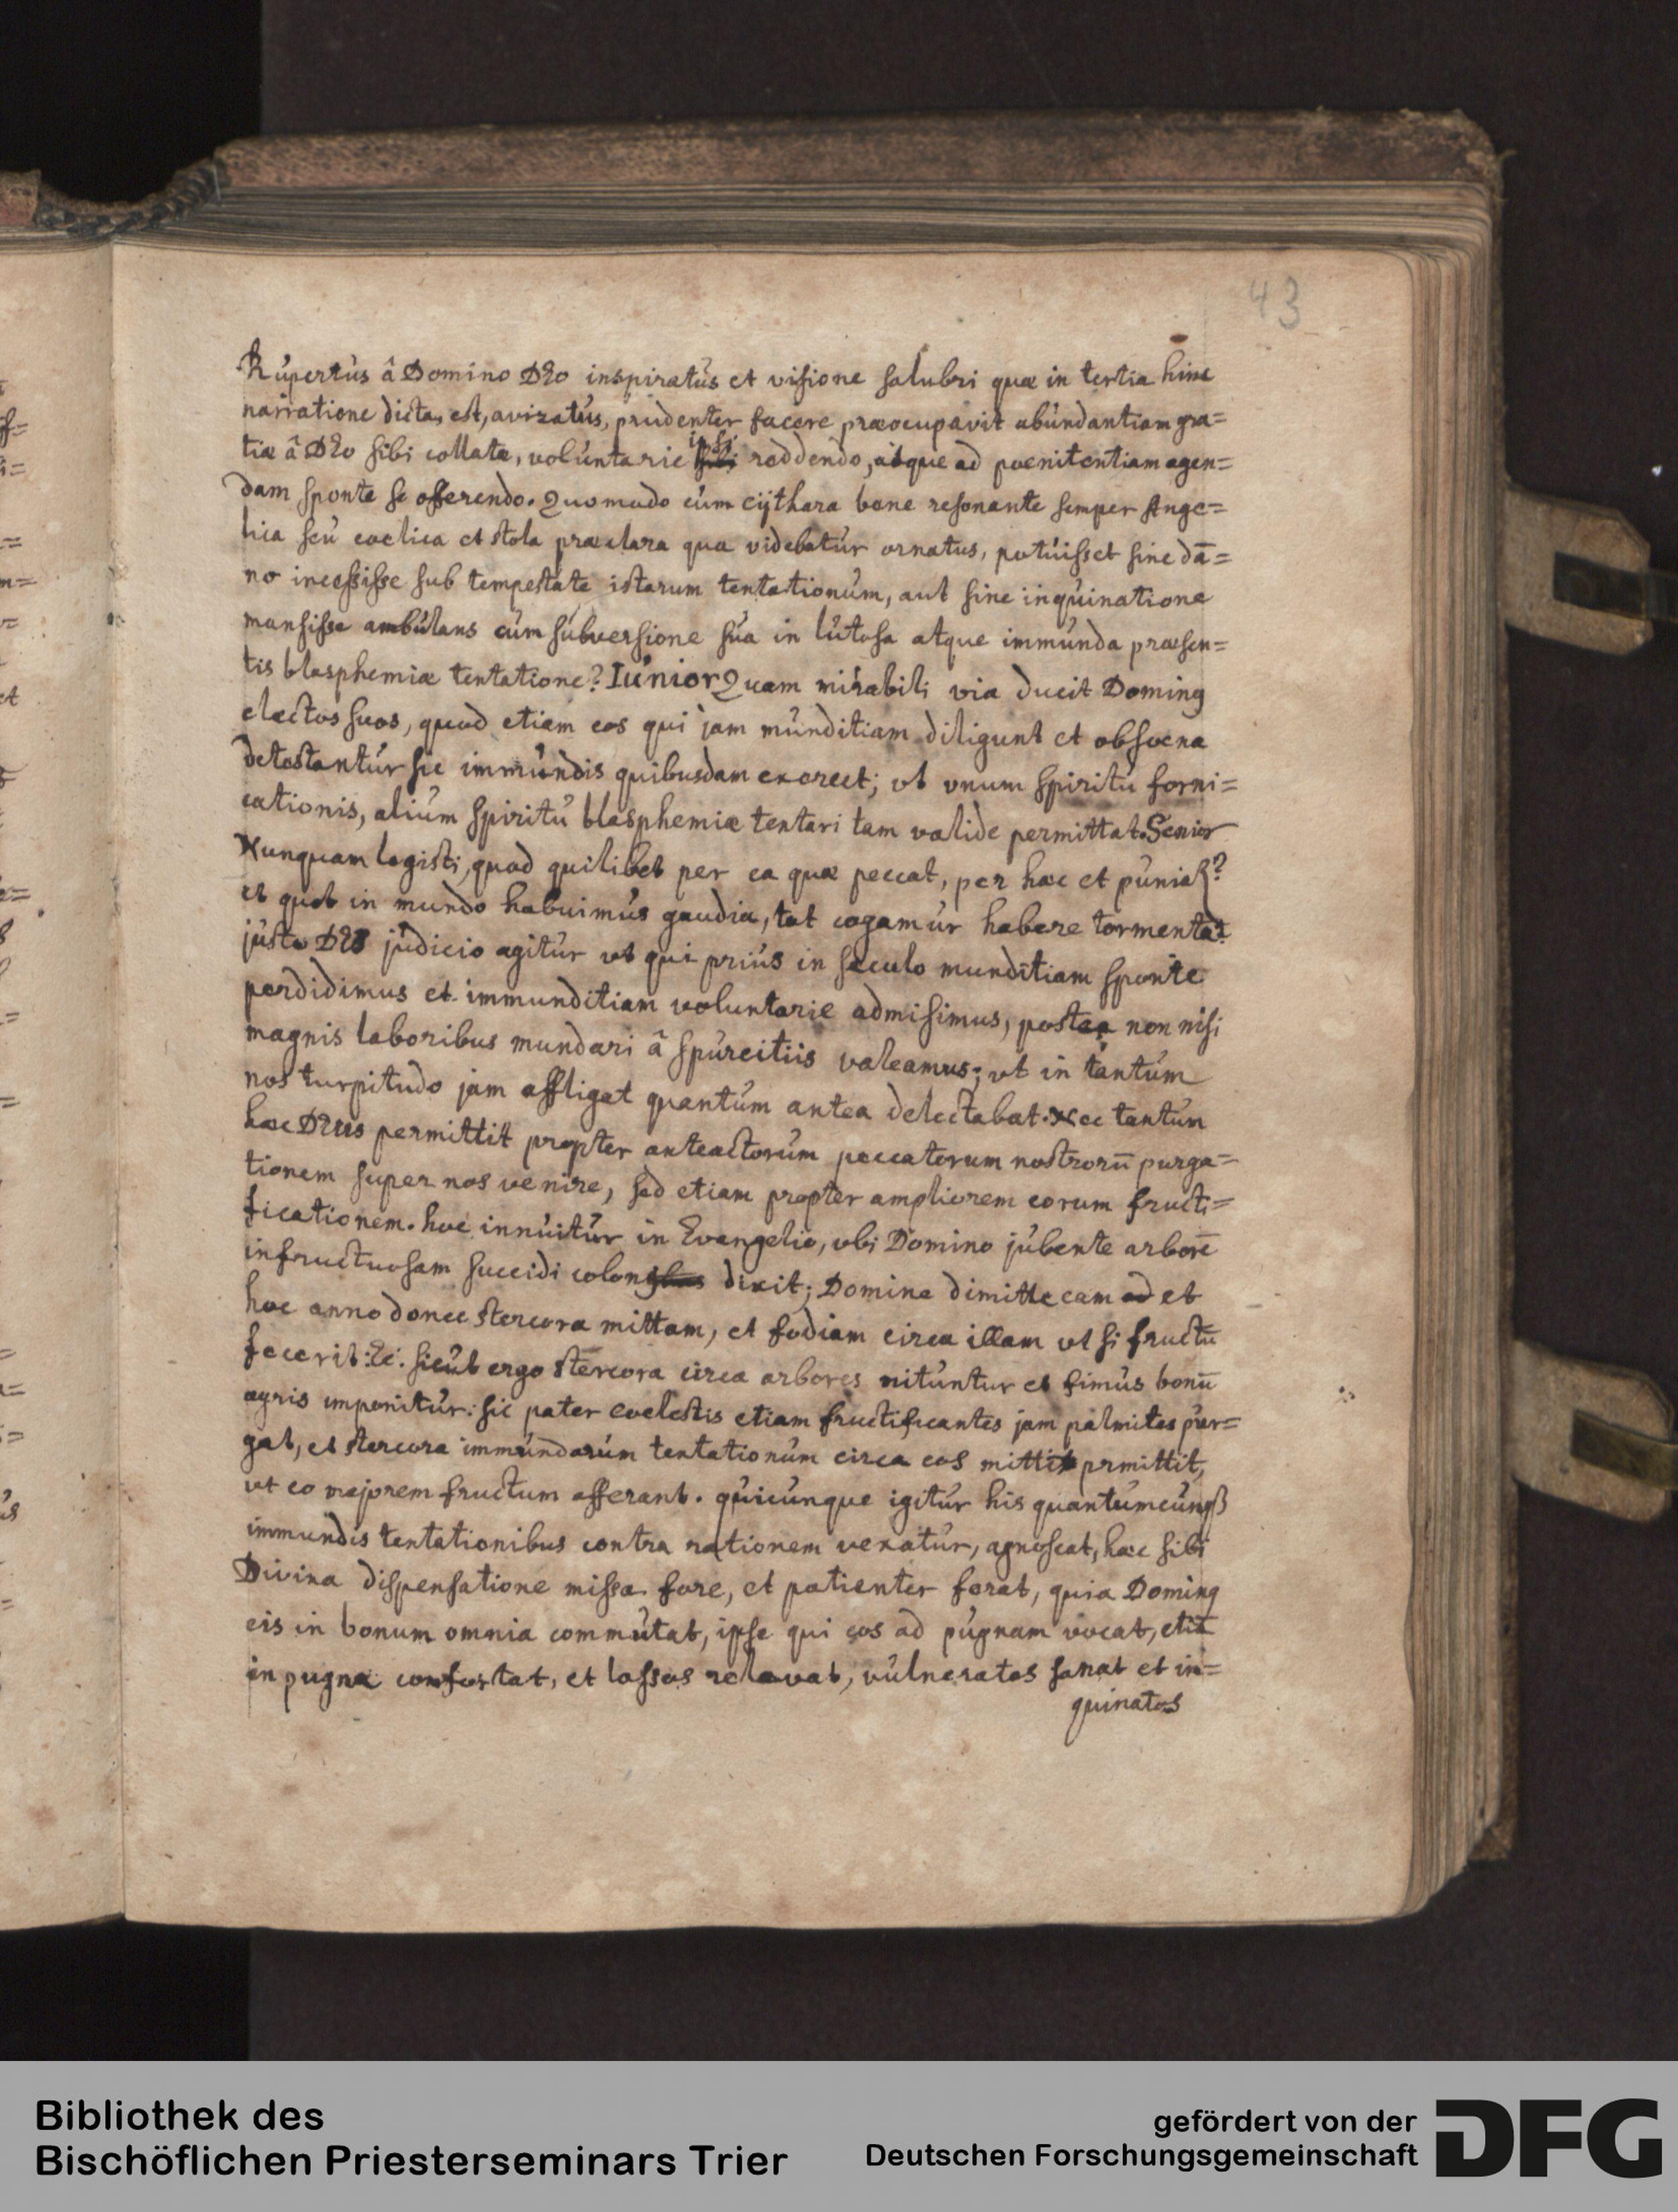 43
Rupertus â Domino Deo inspiratus et visione salubri quæ in tertia hinc
narratione dicta, est, avizatus, prudenter facere præocupavit abundantiam gra=
tiæ â Deo sibi collatæ, voluntarie ipsi reddendo, atque ad poenitentiam agen=
dam sponte se offerendo. Quomodo cum cijthara bene resonante semper Ange=
lica seu coelica et stola præclara qua videbatur ornatus, potuisset sine dā=
no incessisse sub tempestate istarum tentationum, aut sine inquinatione
mansisse ambulans cum subversione sua in lutosa atque immunda præsen=
tis blasphemiæ tentatione? Iunior Quam mirabili via ducit Dominꝰ
electos suos, quod etiam eos qui jam munditiam diligunt et obscena
detestantur sic immundis quibusdam exercet; vt vnum spiritu forni=
cationis, alium spiritu blasphemiæ tentari tam valide permittat. Senior
Nunquam legisti, quod quilibet per ea quæ peccat, per hæc et punia{?
et quot in mundo habuimus gaudia, tot cogamur habere tormenta?
justo Dei judicio agitur vt qui prius in sæculo munditiam sponte
perdidimus et immunditiam voluntarie admisimus, postea non nisi
magnis laboribus mundari â spurcitiis valeamus; vt in tantum
nos turpitudo jam affligat quantum antea delectabat. Nec tantum
hæc Deus permittit propter anteactorum peccatorum nostrorū purga=
tionem super nos venire, sed etiam propter ampliorem eorum fructi=
ficationem. hoc innuitur in Evangelio, vbi Domino jubente arborē
infructuosam succidi colonꝰ dixit; Domine dimitte eam et
hoc anno donec stercora mittam, et fodiam circa illam vt si fructū
fecerit: Ec: sicut ergo stercora circa arbores mituntur et fimus bonū
agris imponitur: sic pater coelestis etiam fructificantes jam palmites pur=
gat, et stercora immundarum tentationum circa eos mitti prmittit,
vt eo majorem fructum afferant. quicunque igitur his quantumcunqꝫ
immundis tentationibus contra rationem vexatur, agnoscat, hæc sibi
Divina dispensatione missa fore, et patienter ferat, quia Dominꝰ
eis in bonum omnia commutat, ipse qui eos ad pugnam vocat, etiā
in pugna confortat, et lassos relevat, vulneratos sanat et in=
quinatos
Bibliothek des
Bischöflichen Priesterseminars Trier
gefördert von der
Deutschen Forschungsgemeinschaft
DFG